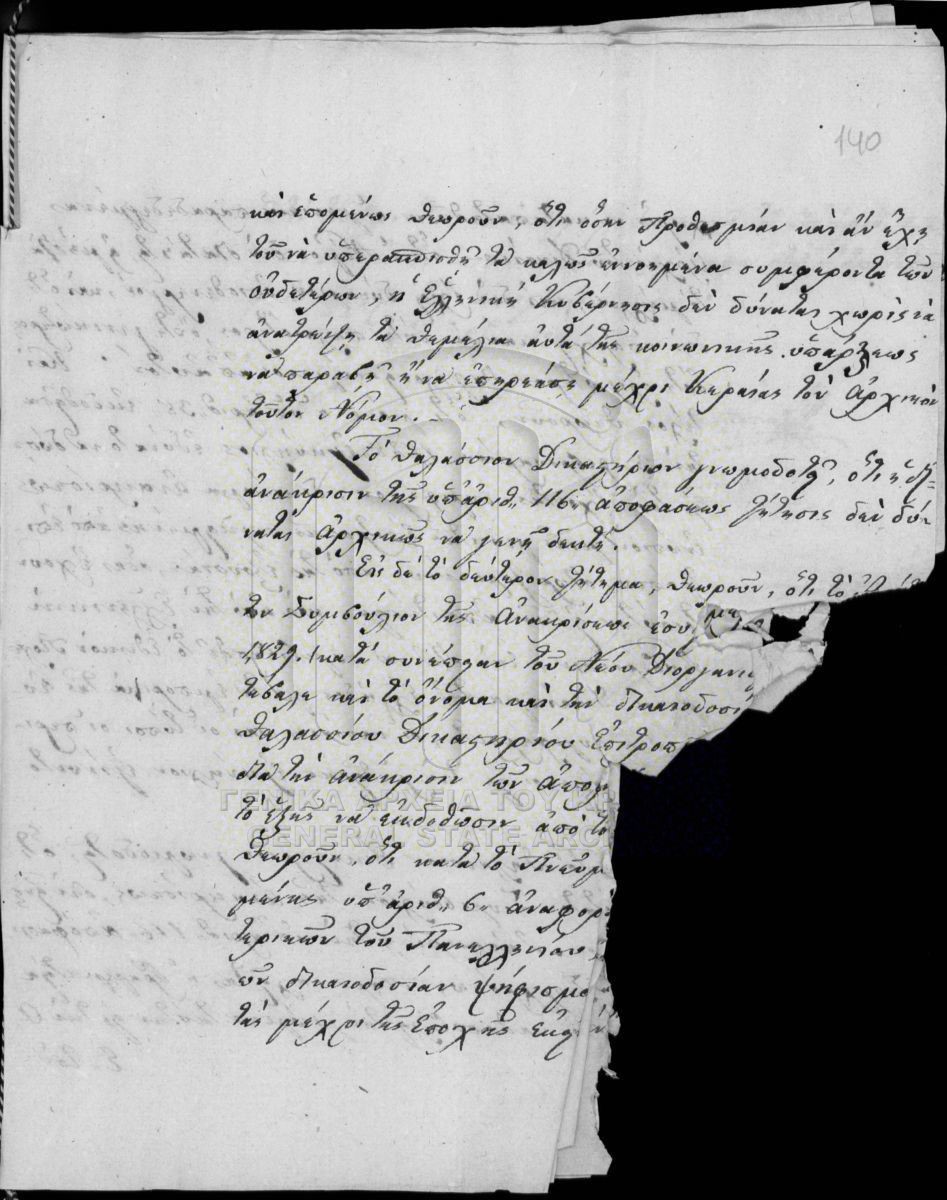 140
καὶ ἑπομένως θεωροῦν, ὅτι ὅσην προθεσμίαν καὶ ἂν ἔχῃ
τοῦ νὰ ὑπερασπισθῇ τὰ καλῶς ἐννοημένα συμφέροντα τῶν
οὐδετέρων, ἡ Ἑλληνικὴ Κυβέρνησις δὲν δύναται χωρὶς νὰ
ἀνατρέψῃ τὰ θεμέλια αὐτὰ τῆς κοινωνικῆς ὑπάρξεως
νὰ παραβῇ ἢ νὰ ἐπηρεάσῃ μέχρι κεραίας τὸν ἀρχικὸν
τοῦτον Νόμον.
Τὸ θαλάσσιον Δικαστήριον γνωμοδοτεῖ, ὅτι ἡ δι᾽
ἀνάκρισιν τῆς ὑπ᾽ ἀριθ. 116 ἀποφάσεως ζήτησις δὲν δύ-
ναται ἀρχικῶς νὰ γενῇ δεκτή.
Εἰς δὲ τὸ δεύτερον ζήτημα, θεωροῦν, ὅτι τὸ
Συμβούλιον τῆς Ἀνακρίσεως
1829. κατὰ συνέπειαν τοῦ Νέου Διοργανι
τέβαλε καὶ τὸ ὄνομα καὶ τὴν δικαιοδοσί
θαλασσίου Δικαστηρίου Ἐπιτροπ
διὰ τὴν ἀνάκρισιν τῶν ἀπο
τὸ ἑξῆς νὰ ἐκδοθῶσιν ἀπὸ το
θεωροῦν, ὅτι κατὰ τὸ Πνεῦμ
μένης ὑπ᾽ ἀριθ. 6 ἀναφορ
τερικῶν τοῦ Πανελληνίου
δικαιοδοσίαν ψήφισμα
τῆς μέχρι τῆς ἐποχῆς
ΓΕΝΙΚΑ ΑΡΧΕΙΑ ΤΟΥ
GENERAL STATE ARC